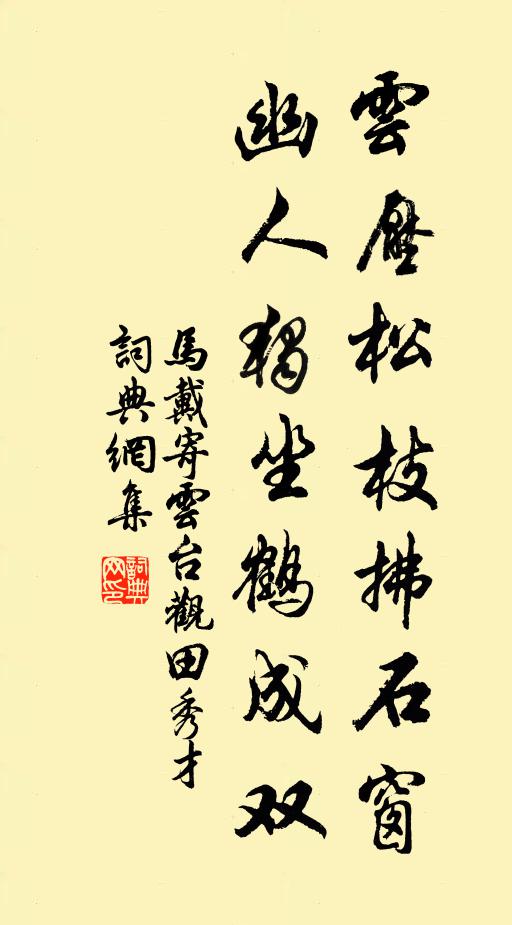 雲壓松枝拂石窗
幽人獨坐鶴成双
馬戴寄雲台觀田秀才
詞典網集
詞典
网印